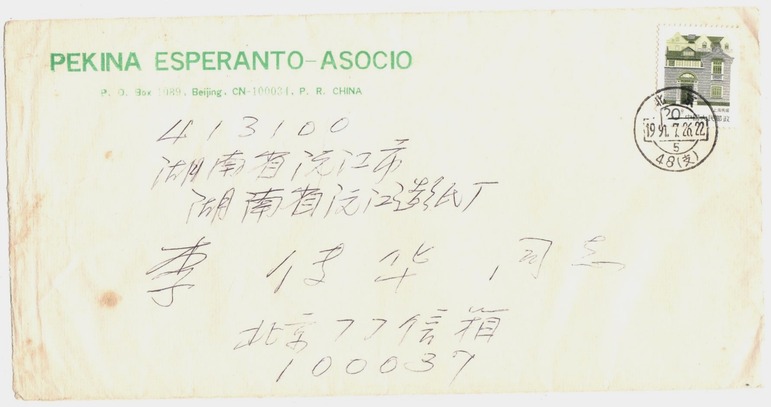 PEKINA ESPERANTO-ASOCIO
P. O. Box 1089, Beijing, CN-100034, P. R. CHINA
北京
20
1991.7.26.22
5
48(支)
413100
湖南省沅江市
湖南省沅江造纸厂
李 华 同志
北京77信箱
100037